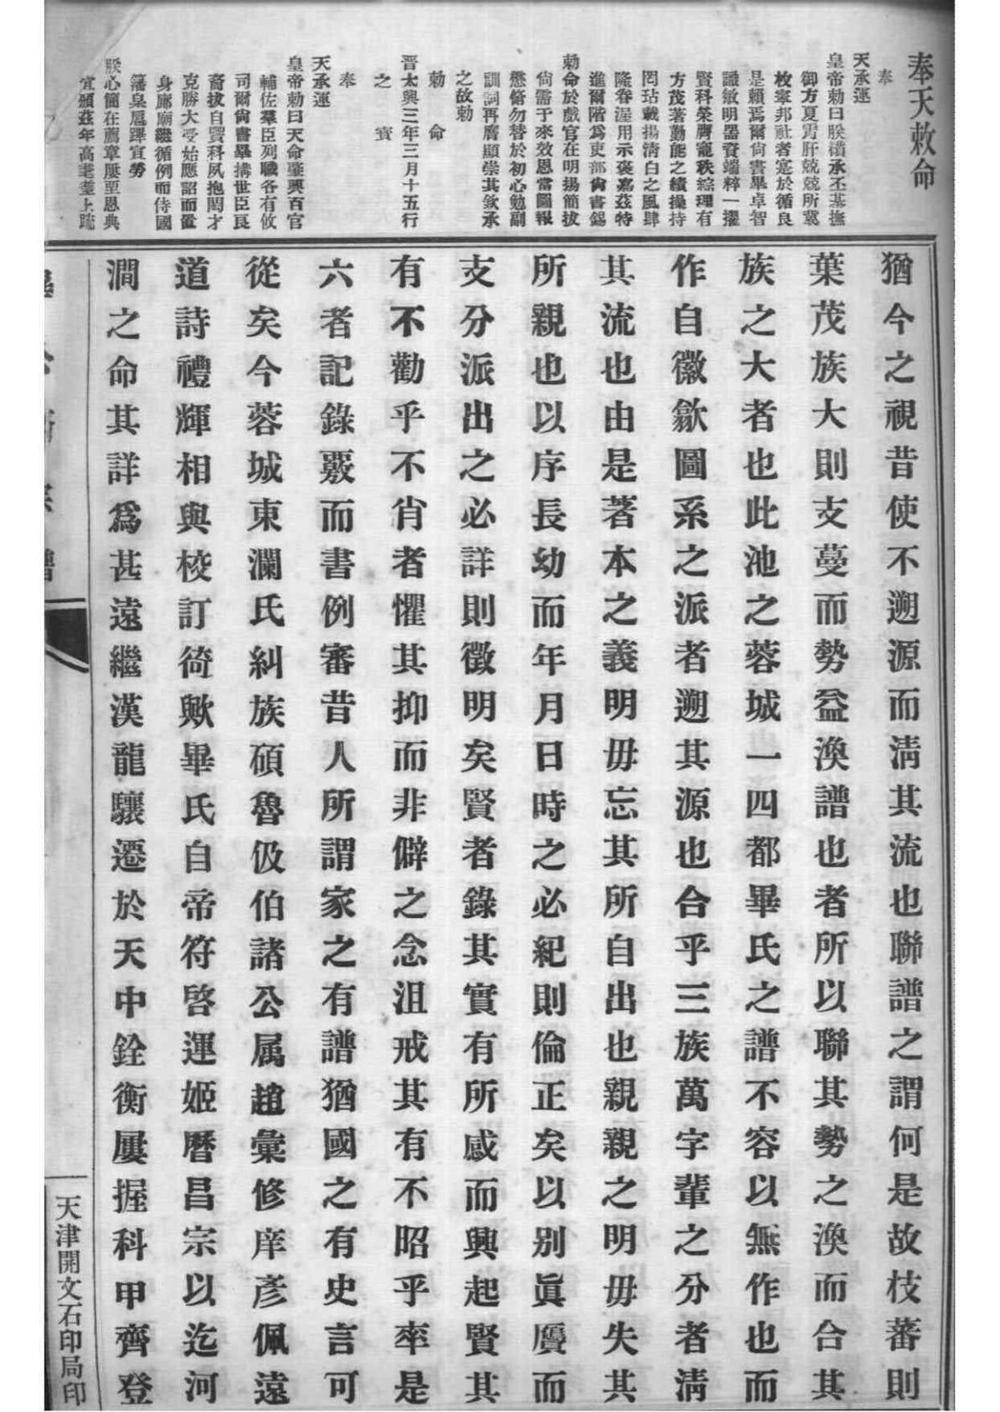 奉天敕命
奉
天承運
皇帝勅曰朕纘承丕基撫
御方夏宵肝兢兢所冀
枚寧邦社者寔於循良
是賴焉爾尙書畢卓智
識敏明器資端粹一擢
賢科榮膺寵秩綜理有
方茂著勤能之績操持
罔玷載揚清白之風肆
隆眷渥用示褒嘉茲特
進爾階爲吏部尙書錫
勅命於戲官在明揚簡拔
尙需于來效恩當圖報
懋脩勿替於初心勉副
訓詞再膺顯崇其欽承
之故勅
勅命
晋太興三年三月十五行
之寳
奉
天承運
皇帝勅曰天命肇興百官
輔佐羣臣列職各有攸
司爾尙書畢構世臣長
裔拔自賢科夙抱閎才
克勝大受始應詔而儤
身廊廟繼循例而侍國
藩臬扈蹕宣勞
朕心簡在薦章屢至恩典
宜頒茲年高耄耋上疏
猶今之視昔使不遡源而淸其流也聯譜之謂何是故枝蕃則
葉茂族大則支蔓而勢益渙譜也者所以聯其勢之渙而合其
族之大者也此池之蓉城一四都畢氏之譜不容以無作也而
作自徽歙圖系之派者遡其源也合乎三族萬字輩之分者淸
其流也由是著本之義明毋忘其所自出也親親之明毋失其
所親也以序長幼而年月日時之必紀則倫正矣以別眞贋而
支分派出之必詳則徵明矣賢者錄其實有所感而興起賢其
有不勸乎不肖者懼其抑而非僻之念沮戒其有不昭乎率是
六者記錄覈而書例審昔人所謂家之有譜猶國之有史言可
從矣今蓉城東瀾氏糾族碩魯伋伯諸公属趙彙修庠彥佩遠
道詩禮輝相與校訂猗歟畢氏自帝符啓運姬曆昌宗以迄河
澗之命其詳爲甚遠繼漢龍驤遷於天中銓衡屢握科甲齊登
天津開文石印局印